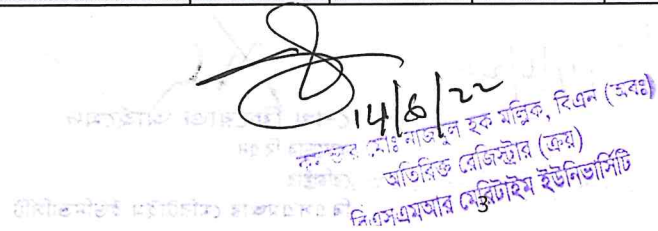 14/6/22
মোঃ নাজমুল হক মল্লিক, বিএন (অবঃ)
অতিরিক্ত রেজিস্ট্রার (ক্রয়)
বিএসএমআর মেরিটাইম ইউনিভার্সিটি
3